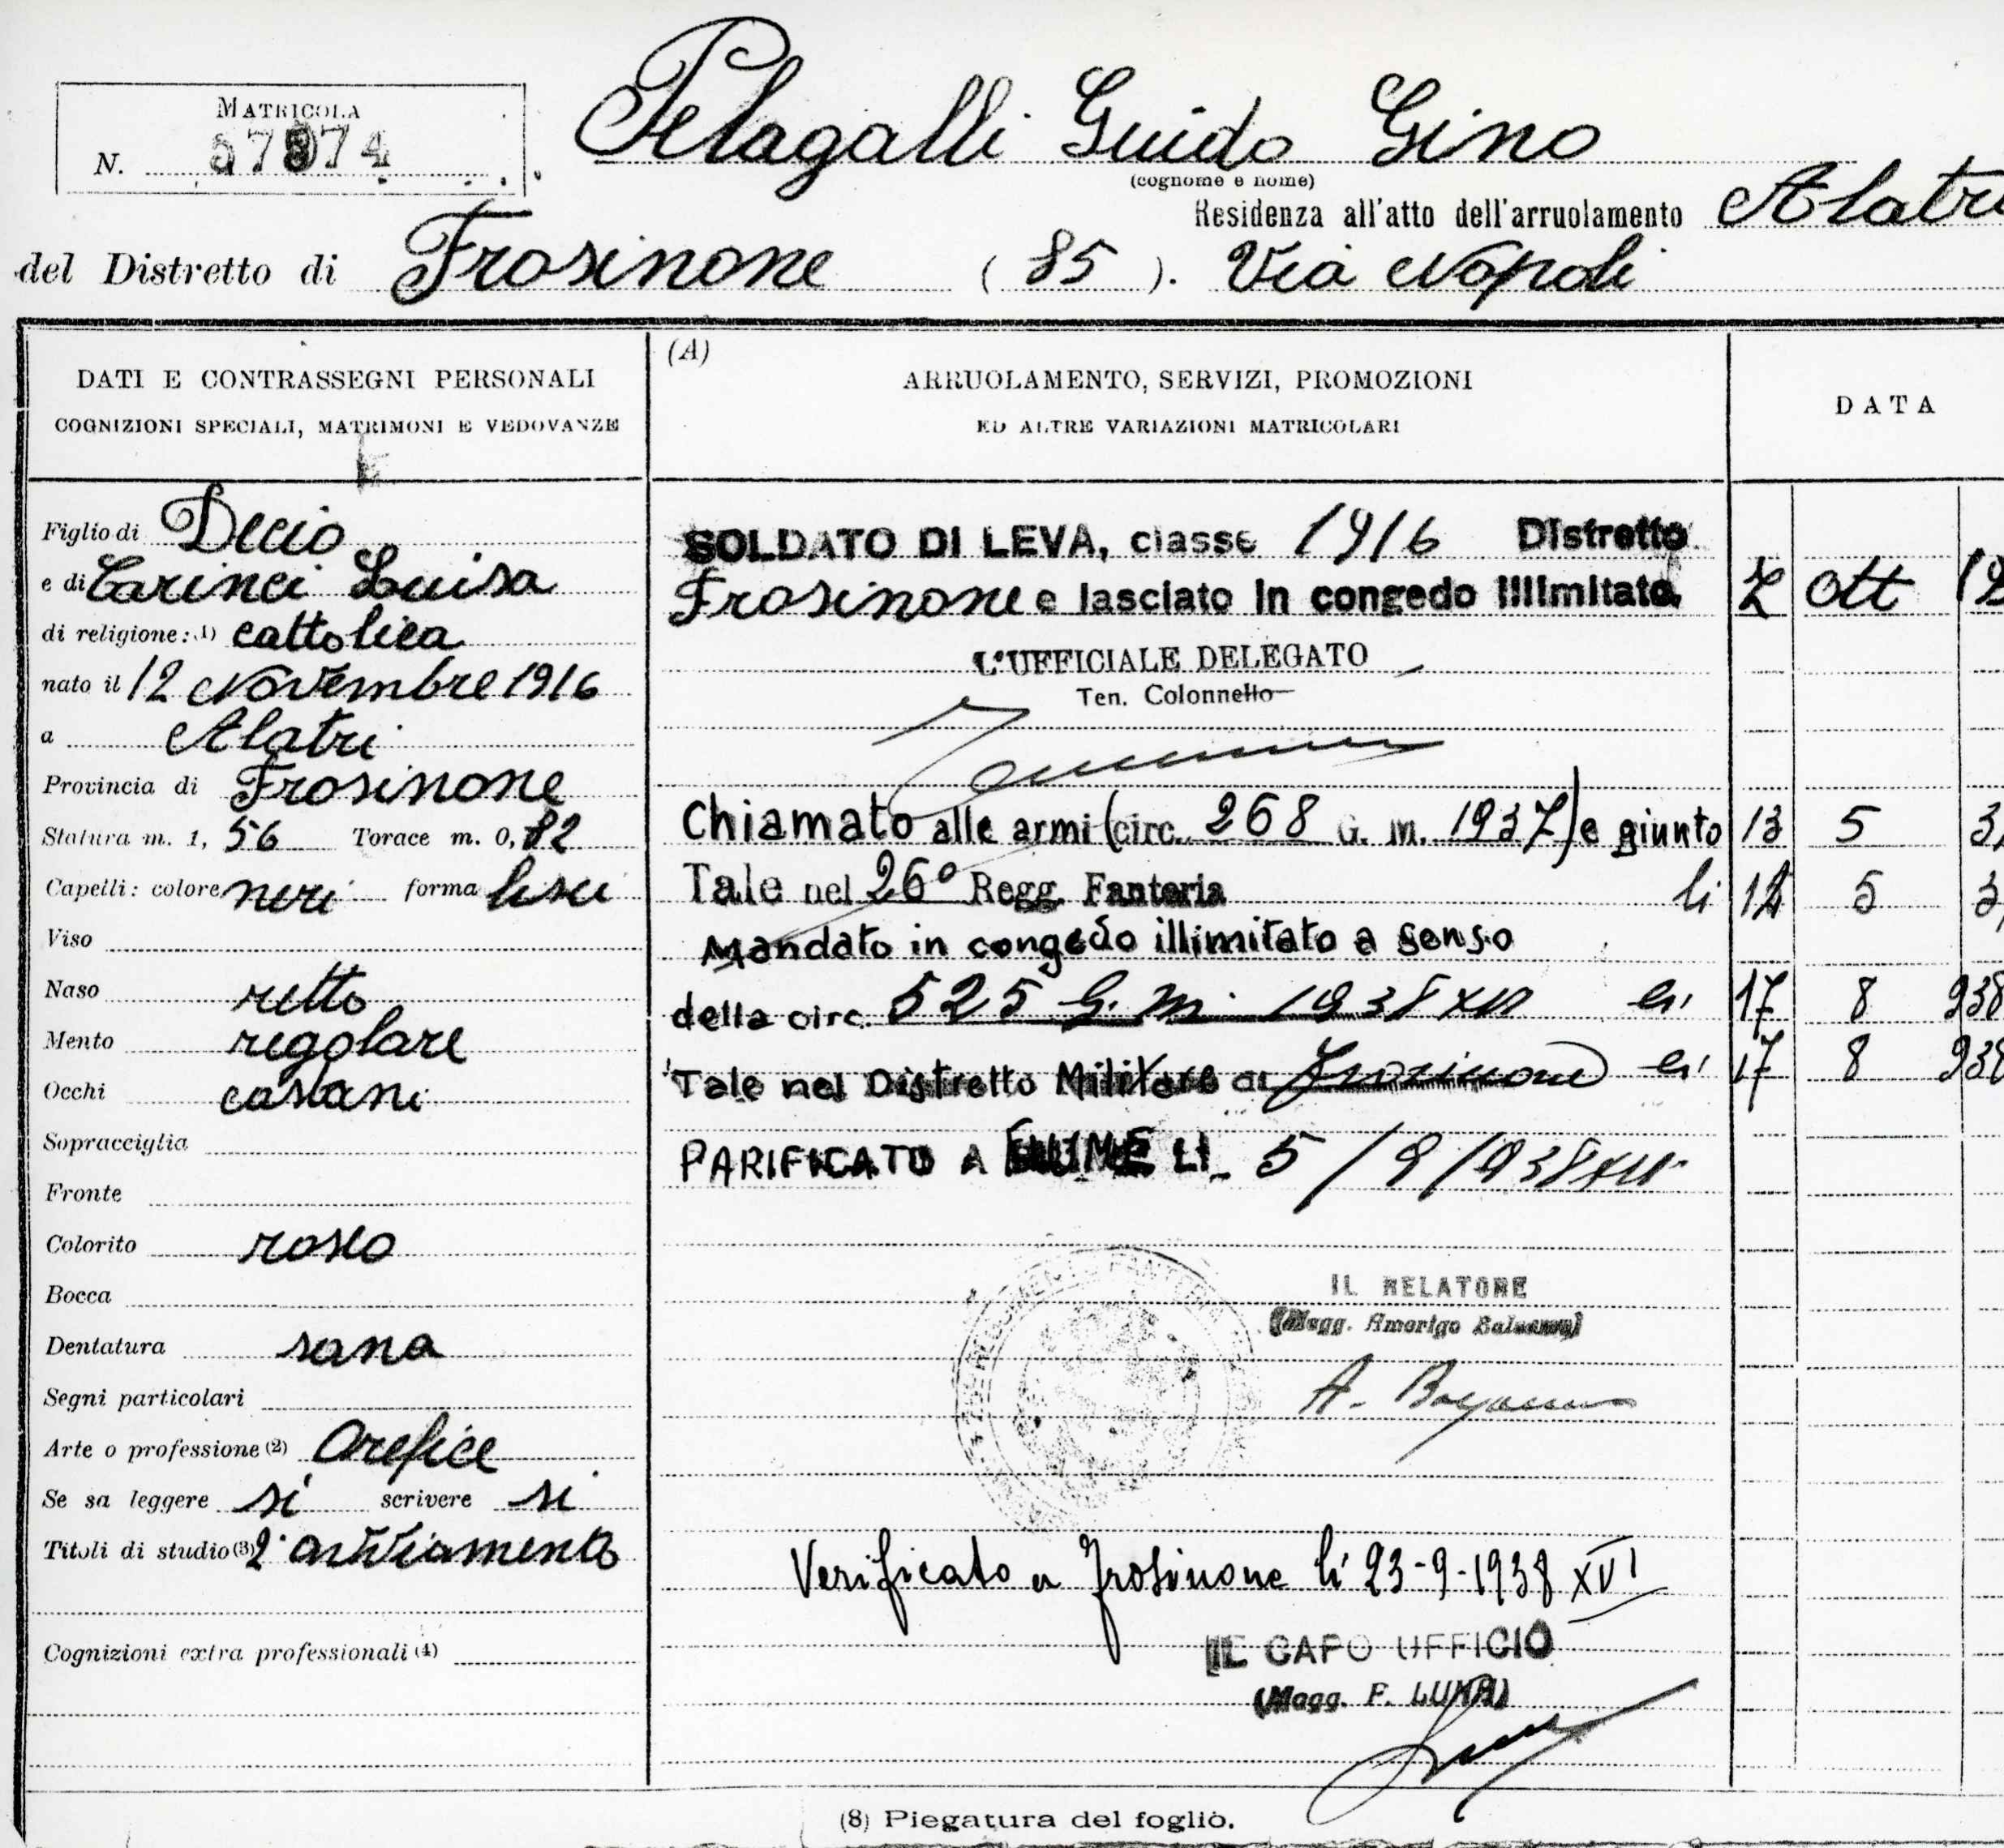 MATRICOLA
N. 57974
Pelagalli Guido Gino
(cognome e nome)
Residenza all'atto dell'arruolamento Alatri
del Distretto di Frosinone (85). Via Napoli
DATI E CONTRASSEGNI PERSONALI
COGNIZIONI SPECIALI, MATRIMONI E VEDOVANZE
(A)
ARRUOLAMENTO, SERVIZI, PROMOZIONI
ED ALTRE VARIAZIONI MATRICOLARI
DATA
Figlio di Decio
e di Carinci Luisa
di religione: (1) cattolica
nato il 12 Novembre 1916
a Alatri
Provincia di Frosinone
Statura m. 1, 56 Torace m. 0, 82
Capelli: colore neri forma lisci
Viso
Naso retto
Mento regolare
Occhi castani
Sopracciglia
Fronte
Colorito roseo
Bocca
Dentatura sana
Segni particolari
Arte o professione (2) Orefice
Se sa leggere si scrivere si
Titoli di studio (3) 2° avviamento
Cognizioni extra professionali (4)
SOLDATO DI LEVA, classe 1916 Distretto
Frosinone e lasciato in congedo illimitato. 7 Ott 19
L'UFFICIALE DELEGATO
Ten. Colonnello
Chiamato alle armi (circ. 268 G. M. 1937) e giunto 13 5 3
Tale nel 26° Regg. Fanteria li 14 5 3
Mandato in congedo illimitato a senso
della circ. 525 G. M. 1938 XVI li 17 8 938
Tale nel Distretto Militare di Frosinone li 17 8 938
PARIFICATO A FIUME LI 5/9/938 XVI
IL RELATORE
(Magg. Amerigo
A.
Verificato a Frosinone li 23-9-1938 XVI
IL CAPO UFFICIO
(Magg. F. LUNA)
(8) Piegatura del foglio.